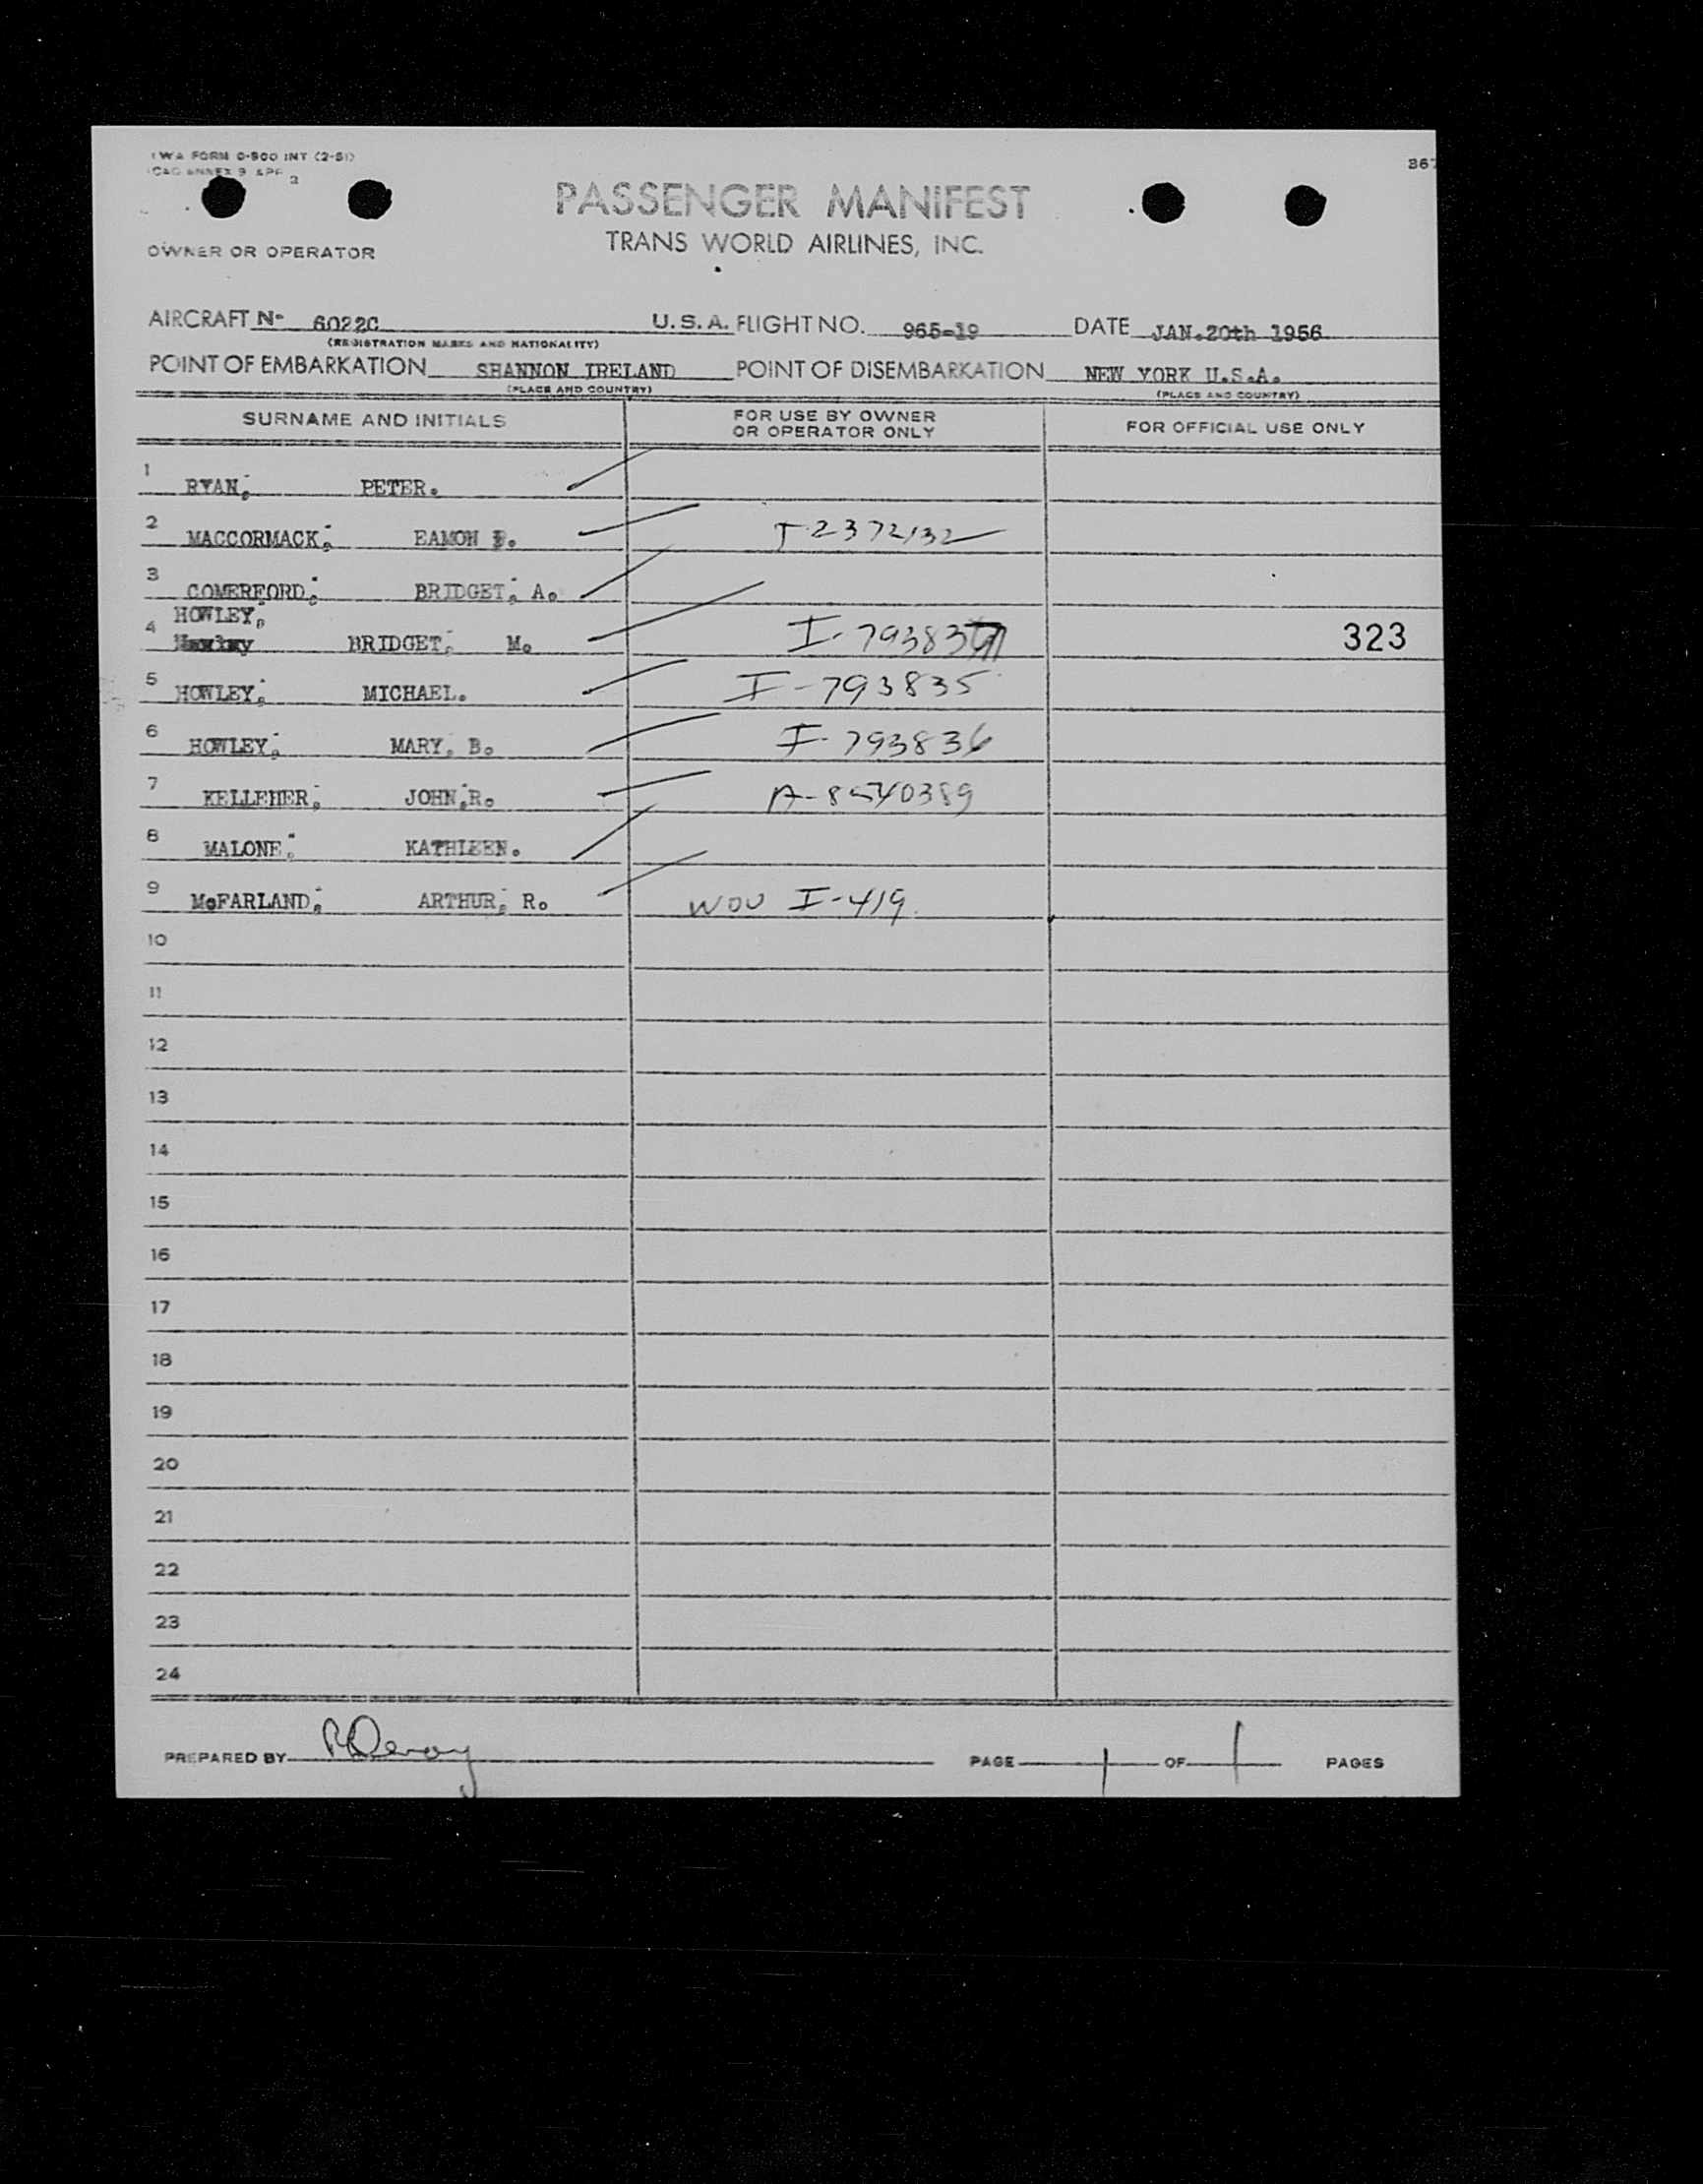 TWA FORM O-800 INT (2-51)
ICAO ANNEX 9 APP 3
367
PASSENGER MANIFEST
TRANS WORLD AIRLINES, INC.
OWNER OR OPERATOR
AIRCRAFT Nº 6022C U.S.A. FLIGHT NO. 965-19 DATE JAN.20th 1956
(REGISTRATION MARKS AND NATIONALITY)
POINT OF EMBARKATION SHANNON IRELAND POINT OF DISEMBARKATION NEW YORK U.S.A.
(PLACE AND COUNTRY) (PLACE AND COUNTRY)
SURNAME AND INITIALS FOR USE BY OWNER OR OPERATOR ONLY FOR OFFICIAL USE ONLY
1 RYAN; PETER.
2 MACCORMACK; EAMON T-2372132
3 COMERFORD; BRIDGET; A.
HOWLEY;
4 BRIDGET; M. I-793837 323
5 HOWLEY; MICHAEL. I-793835
6 HOWLEY; MARY; B. I-793836
7 KELLEHER; JOHN;R. A-8540389
8 MALONE; KATHLEEN.
9 McFARLAND; ARTHUR; R. WOU I-419
10
11
12
13
14
15
16
17
18
19
20
21
22
23
24
PREPARED BY PAGE 1 OF 1 PAGES